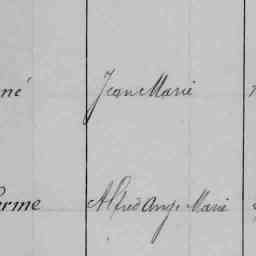 né Jean Marie
erme Alfred Ange Marie